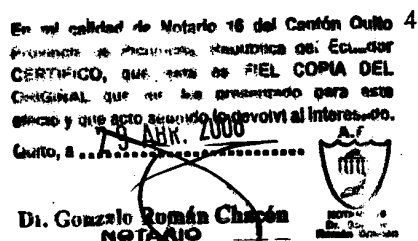 En mi calidad de Notario 16 del Cantón Quito 4
Provincia de Pichincha República del Ecuador
CERTIFICO, que esta es FIEL COPIA DEL
ORIGINAL que me fue presentado para este
efecto y que acto seguido lo devolví al interesado.
Quito, a ABR. 2008
A.F
Dr. Gonzalo Román Chacón
NOTARIO
NOTARIO
Dr.
Román Chacón